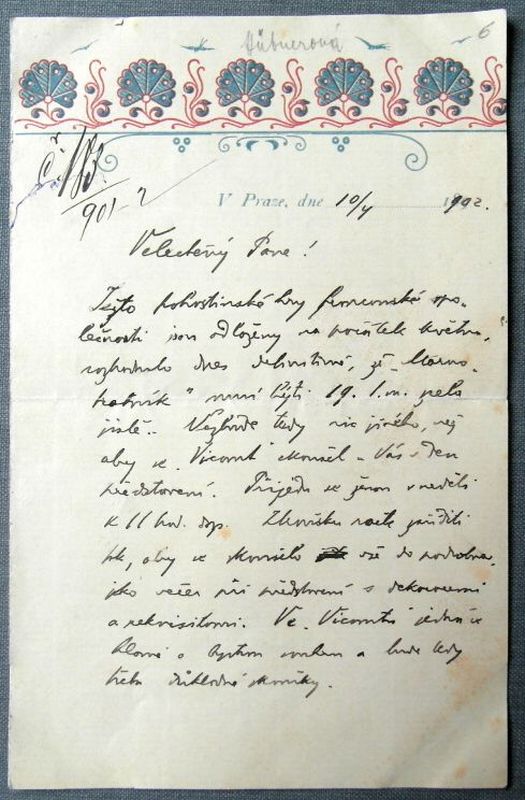 Hübnerová
6
č. 183
901-2
V Praze, dne 10/V 1902.
Velectěný Pane!
pohostinské hry francouzské spo-
lečnosti jsou odloženy na počátek května,
rozhodnuto dnes definitivně, že „Marno-
tratník" musí býti 19. t. m. zcela
jistě. Nezbude tedy nic jiného, než
aby se „Vicomt" zkoušel u Vás v den
představení. Přijedu se ženou v neděli
k 11 hod. dop. Zkoušku račte zaříditi
tak, aby se zkoušelo vše do podrobna,
jako večer při představení s dekoracemi
a rekvisitami. Ve „Vicomtu" jedná se
hlavně o bystrou souhru a bude tedy
třeba důkladné zkoušky.